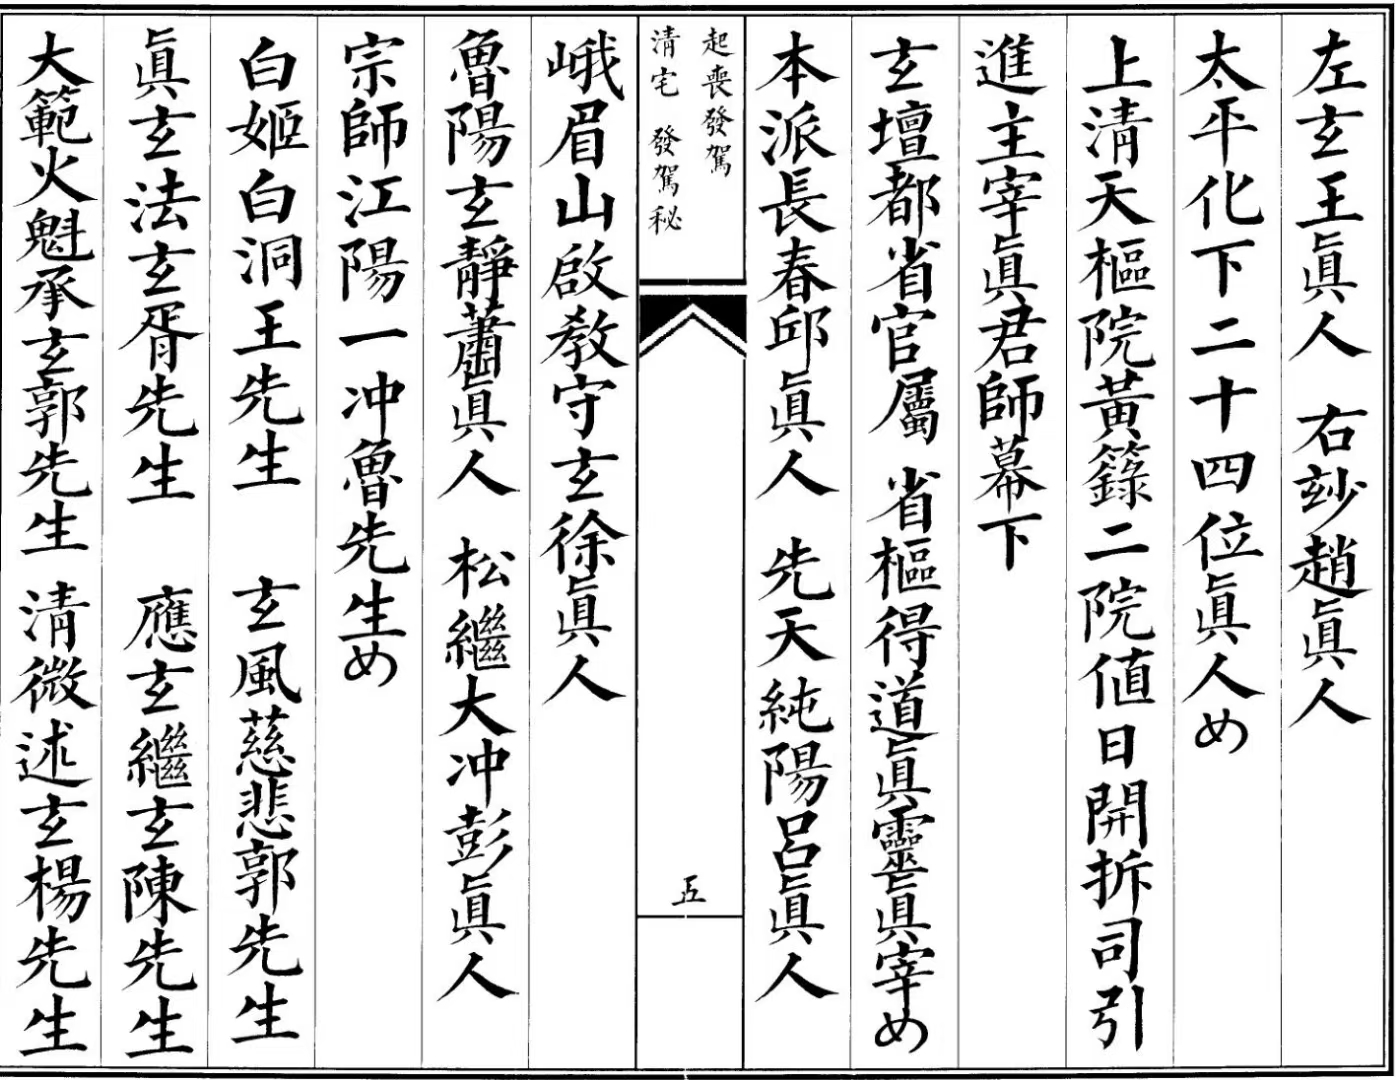 左玄王眞人　右玅趙眞人
太平化下二十四位眞人め
上清天樞院黃籙二院值日開拆司引
進主宰眞君師幕下
玄壇都省官屬　省樞得道眞靈眞宰め
本派長春邱眞人　先天純陽呂眞人
起喪發駕
清宅　發駕秘
五
峨眉山啟敎守玄徐眞人
魯陽玄靜蕭眞人　松繼大冲彭眞人
宗師江陽一冲魯先生め
白姬白洞王先生　玄風慈悲郭先生
眞玄法玄胥先生　應玄繼玄陳先生
大範火魁承玄郭先生　清微述玄楊先生